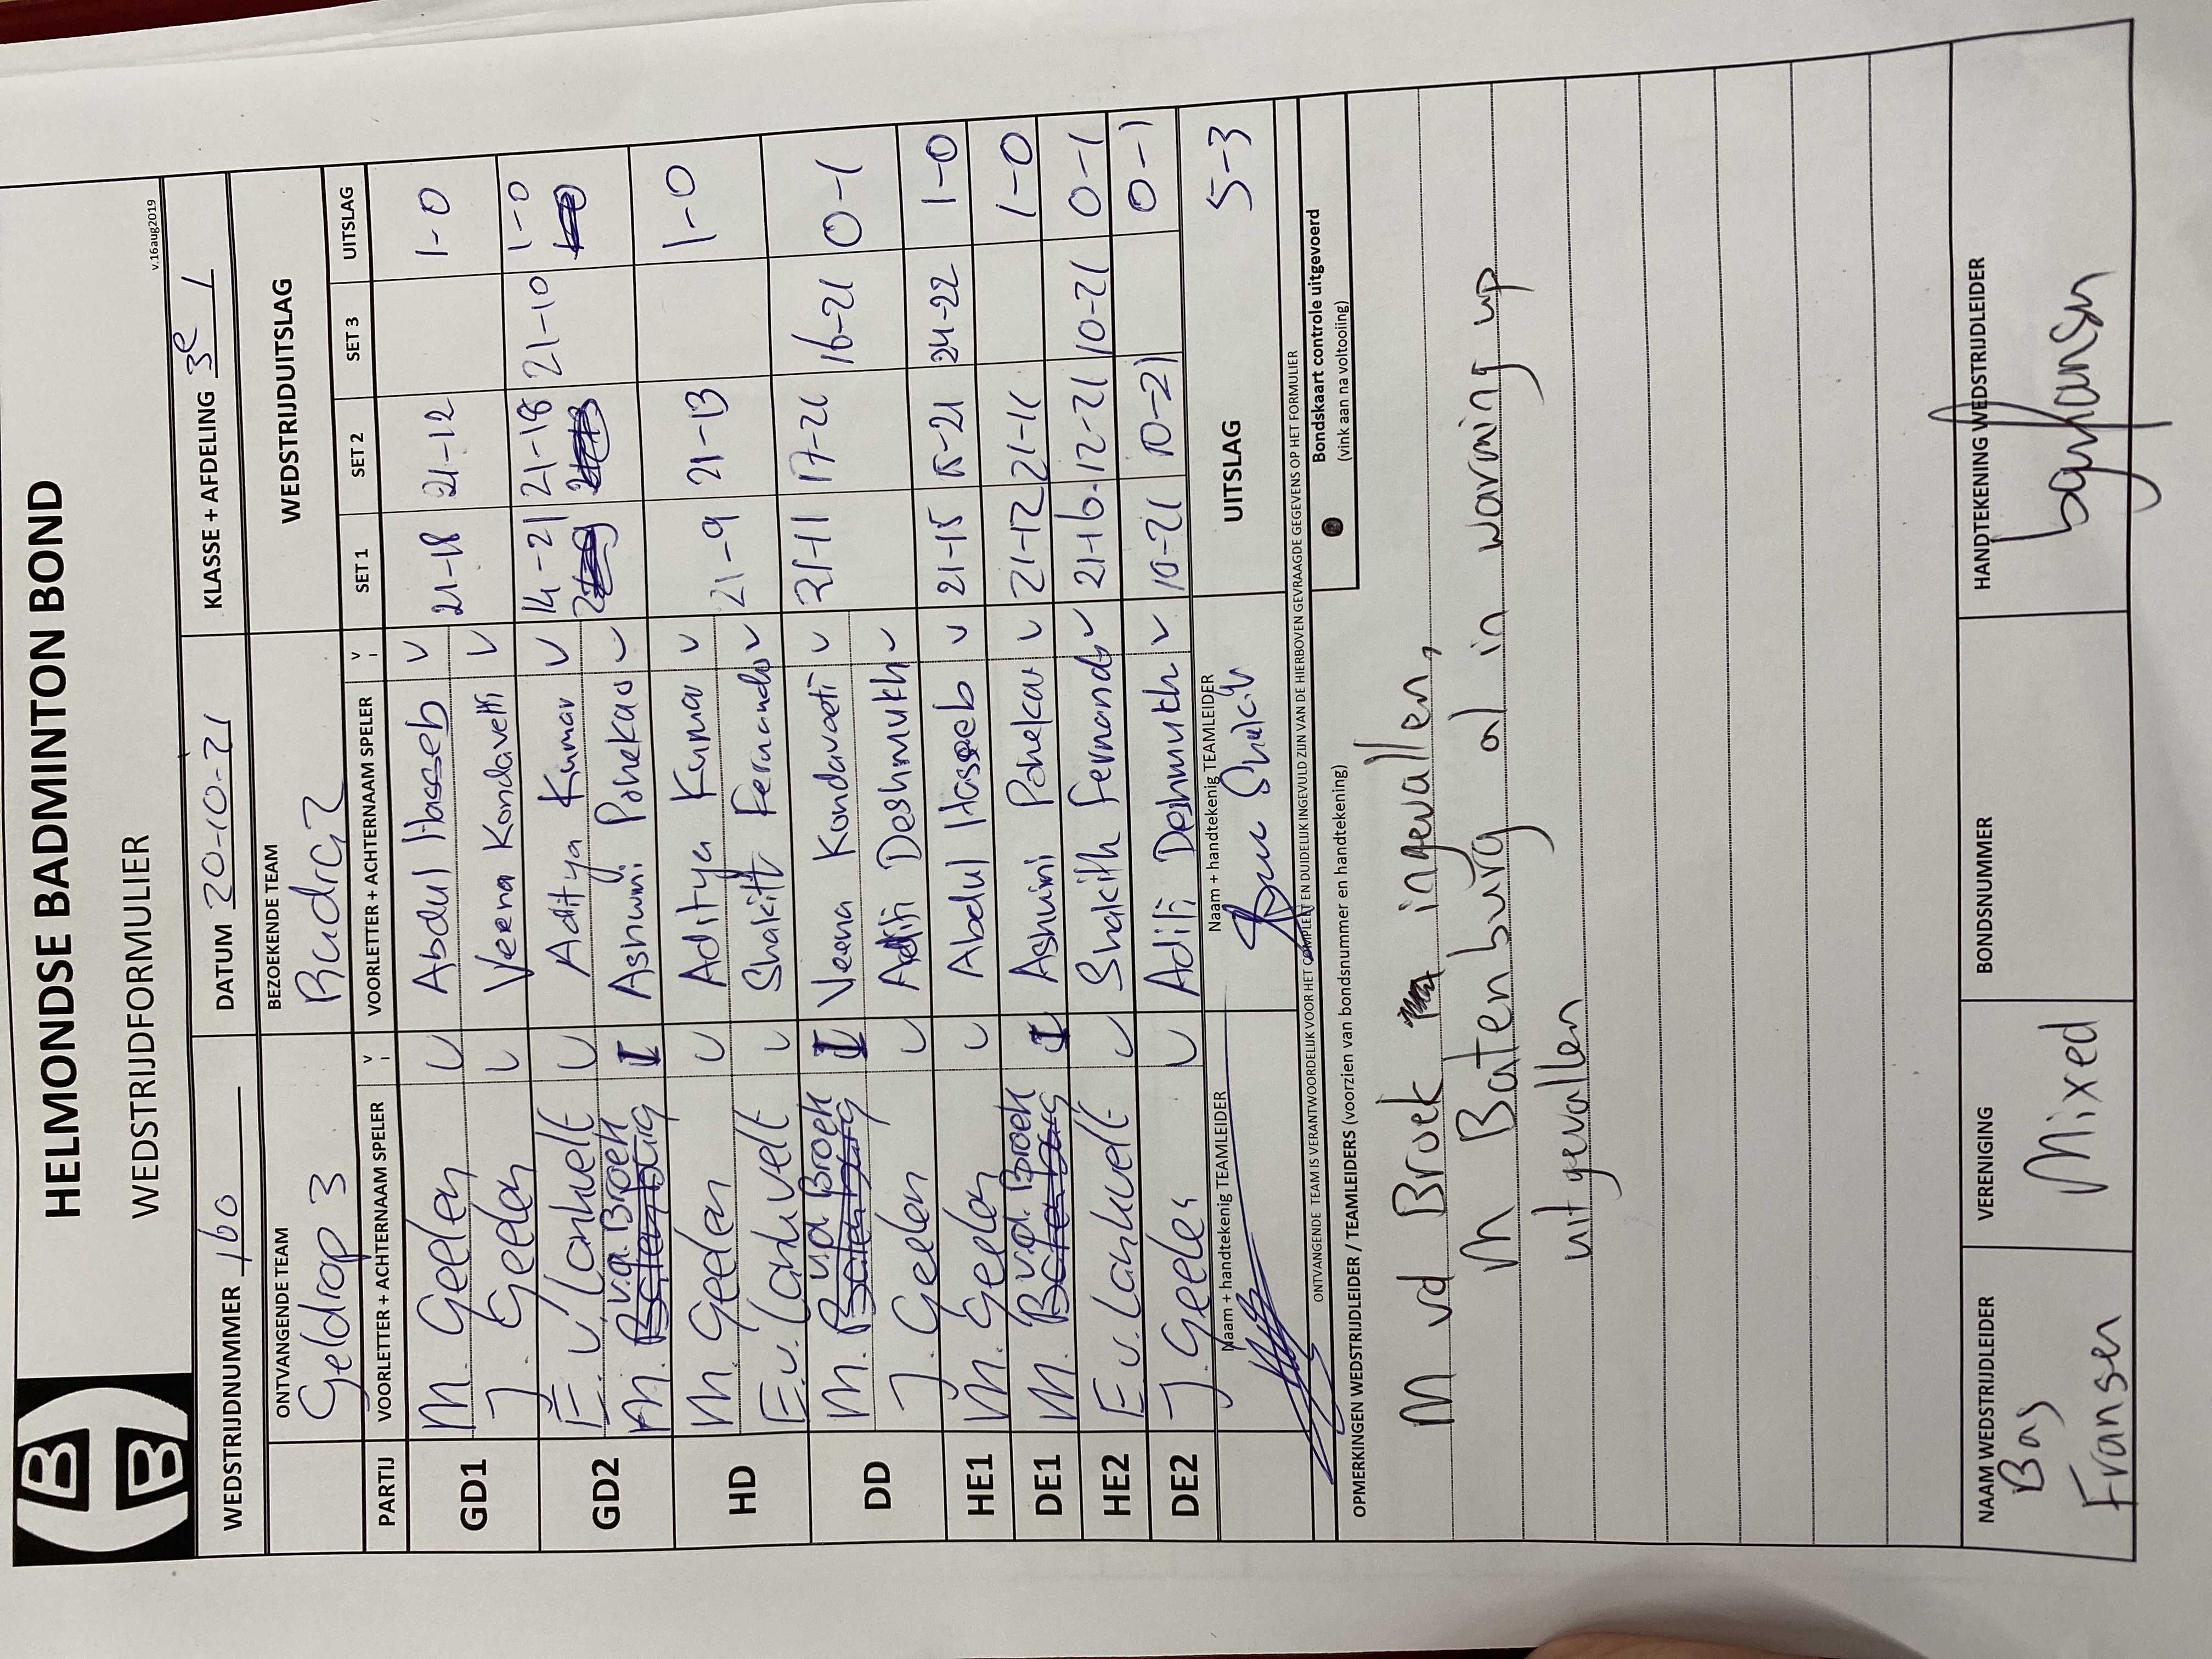 HELMONDSE BADMINTON BOND
WEDSTRIJDFORMULIER
v.16aug2019
WEDSTRIJDNUMMER 160 DATUM 20-10-21 KLASSE + AFDELING 3e 1
ONTVANGENDE TEAM BEZOEKENDE TEAM WEDSTRIJDUITSLAG
Geldrop 3 Rudra 2
PARTIJ VOORLETTER + ACHTERNAAM SPELER V VOORLETTER + ACHTERNAAM SPELER V SET 1 SET 2 SET 3 UITSLAG
GD1 M. Geelen V Abdul Hasseb V 21-18 21-12 1-0
J. Geelen V Veena Kondavetti V
GD2 E. v. Lankvelt V Aditya Kumar V 14-21 21-18 21-10 1-0
M. v.d. Broek I Ashwini Ponekar V
HD M. Geelen V Aditya Kumar V 21-9 21-13 1-0
E. v. Lankvelt V Shakith Fernando V
DD M. v.d. Broek I Veena Kondaveeti V 21-11 17-21 16-21 0-1
J. Geelen V Aditi Deshmukh V
HE1 M. Geelen V Abdul Haseeb V 21-15 15-21 24-22 1-0
DE1 M. v.d. Broek I Ashwini Ponekar V 21-12 21-11 1-0
HE2 E v. Lankvelt V Shakith Fernando V 21-16 12-21 10-21 0-1
DE2 J. Geelen V Aditi Deshmukth V 10-21 10-21 0-1
Naam + handtekenig TEAMLEIDER Naam + handtekenig TEAMLEIDER UITSLAG 5-3
ONTVANGENDE TEAM IS VERANTWOORDELIJK VOOR HET COMPLEET EN DUIDELIJK INGEVULD ZIJN VAN DE HIERBOVEN GEVRAAGDE GEGEVENS OP HET FORMULIER
OPMERKINGEN WEDSTRIJDLEIDER / TEAMLEIDERS (voorzien van bondsnummer en handtekening)
Bondskaart controle uitgevoerd
(vink aan na voltooiing)
M vd Broek ingevallen,
M Batenburg al in warming up
uitgevallen
NAAM WEDSTRIJDLEIDER VERENIGING BONDSNUMMER HANDTEKENING WEDSTRIJDLEIDER
Bas
Fransen Mixed